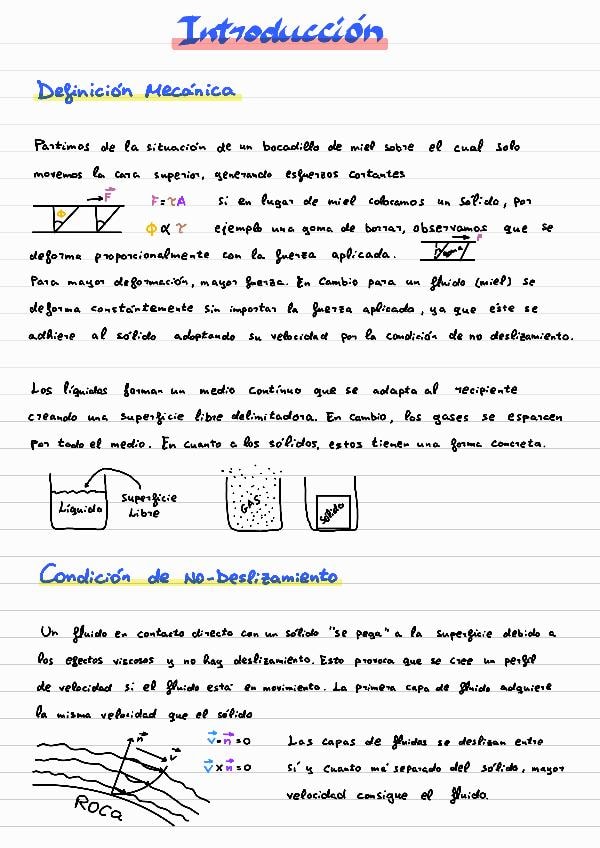 Introducción
Definición Mecánica
Partimos de la situación de un bocadillo de miel sobre el cual solo
movemos la cara superior, generando esfuerzos cortantes
F F=τA Si en lugar de miel colocamos un sólido, por
Φ Φ α τ ejemplo una goma de borrar, observamos que se
deforma proporcionalmente con la fuerza aplicada. Goma F
Para mayor deformación, mayor fuerza. En cambio para un fluido (miel) se
deforma constántemente sin importar la fuerza aplicada, ya que éste se
adhiere al sólido adoptando su velocidad por la condición de no deslizamiento.
Los líquidos forman un medio contínuo que se adapta al recipiente
creando una superficie libre delimitadora. En cambio, los gases se esparcen
por todo el medio. En cuanto a los sólidos, estos tienen una forma concreta.
Líquido
Superficie
Libre
GAS
Sólido
Condición de No-Deslizamiento
Un fluido en contacto directo con un sólido "se pega" a la superficie debido a
los efectos viscosos y no hay deslizamiento. Esto provoca que se cree un perfil
de velocidad si el fluido está en movimiento. La primera capa de fluido adquiere
la misma velocidad que el sólido
n v v=n=0 Las capas de fluidos se deslizan entre
v v×n=0 sí y cuanto má separado del sólido, mayor
ROCA velocidad consigue el fluido.